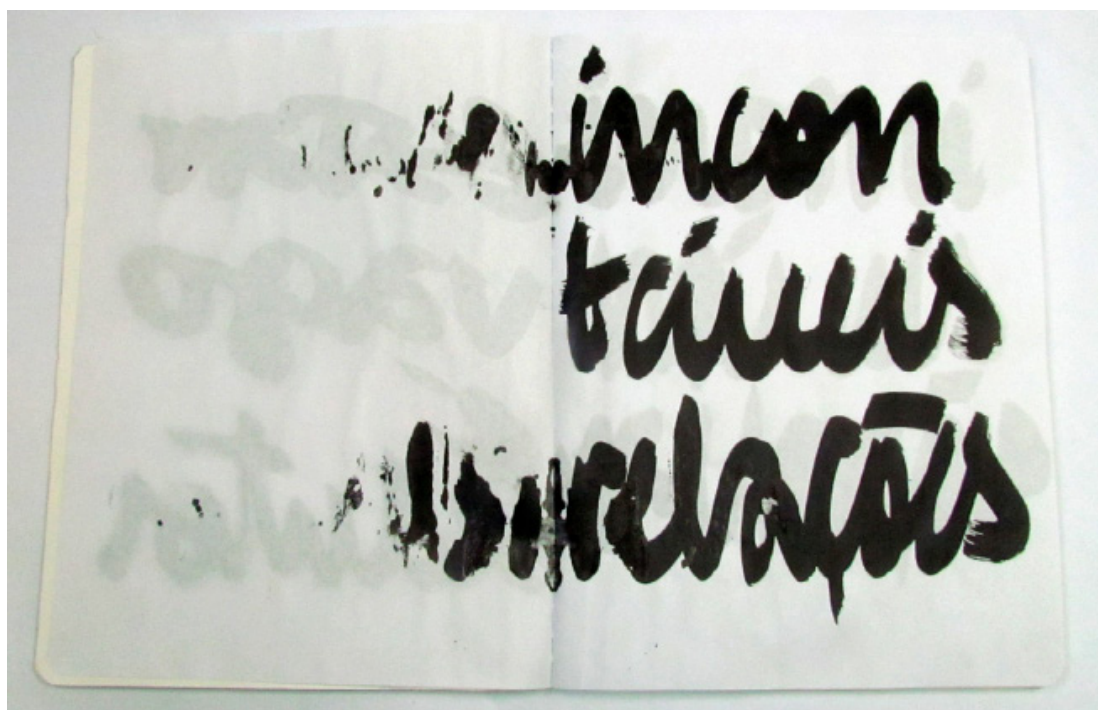 incon
táveis
relações